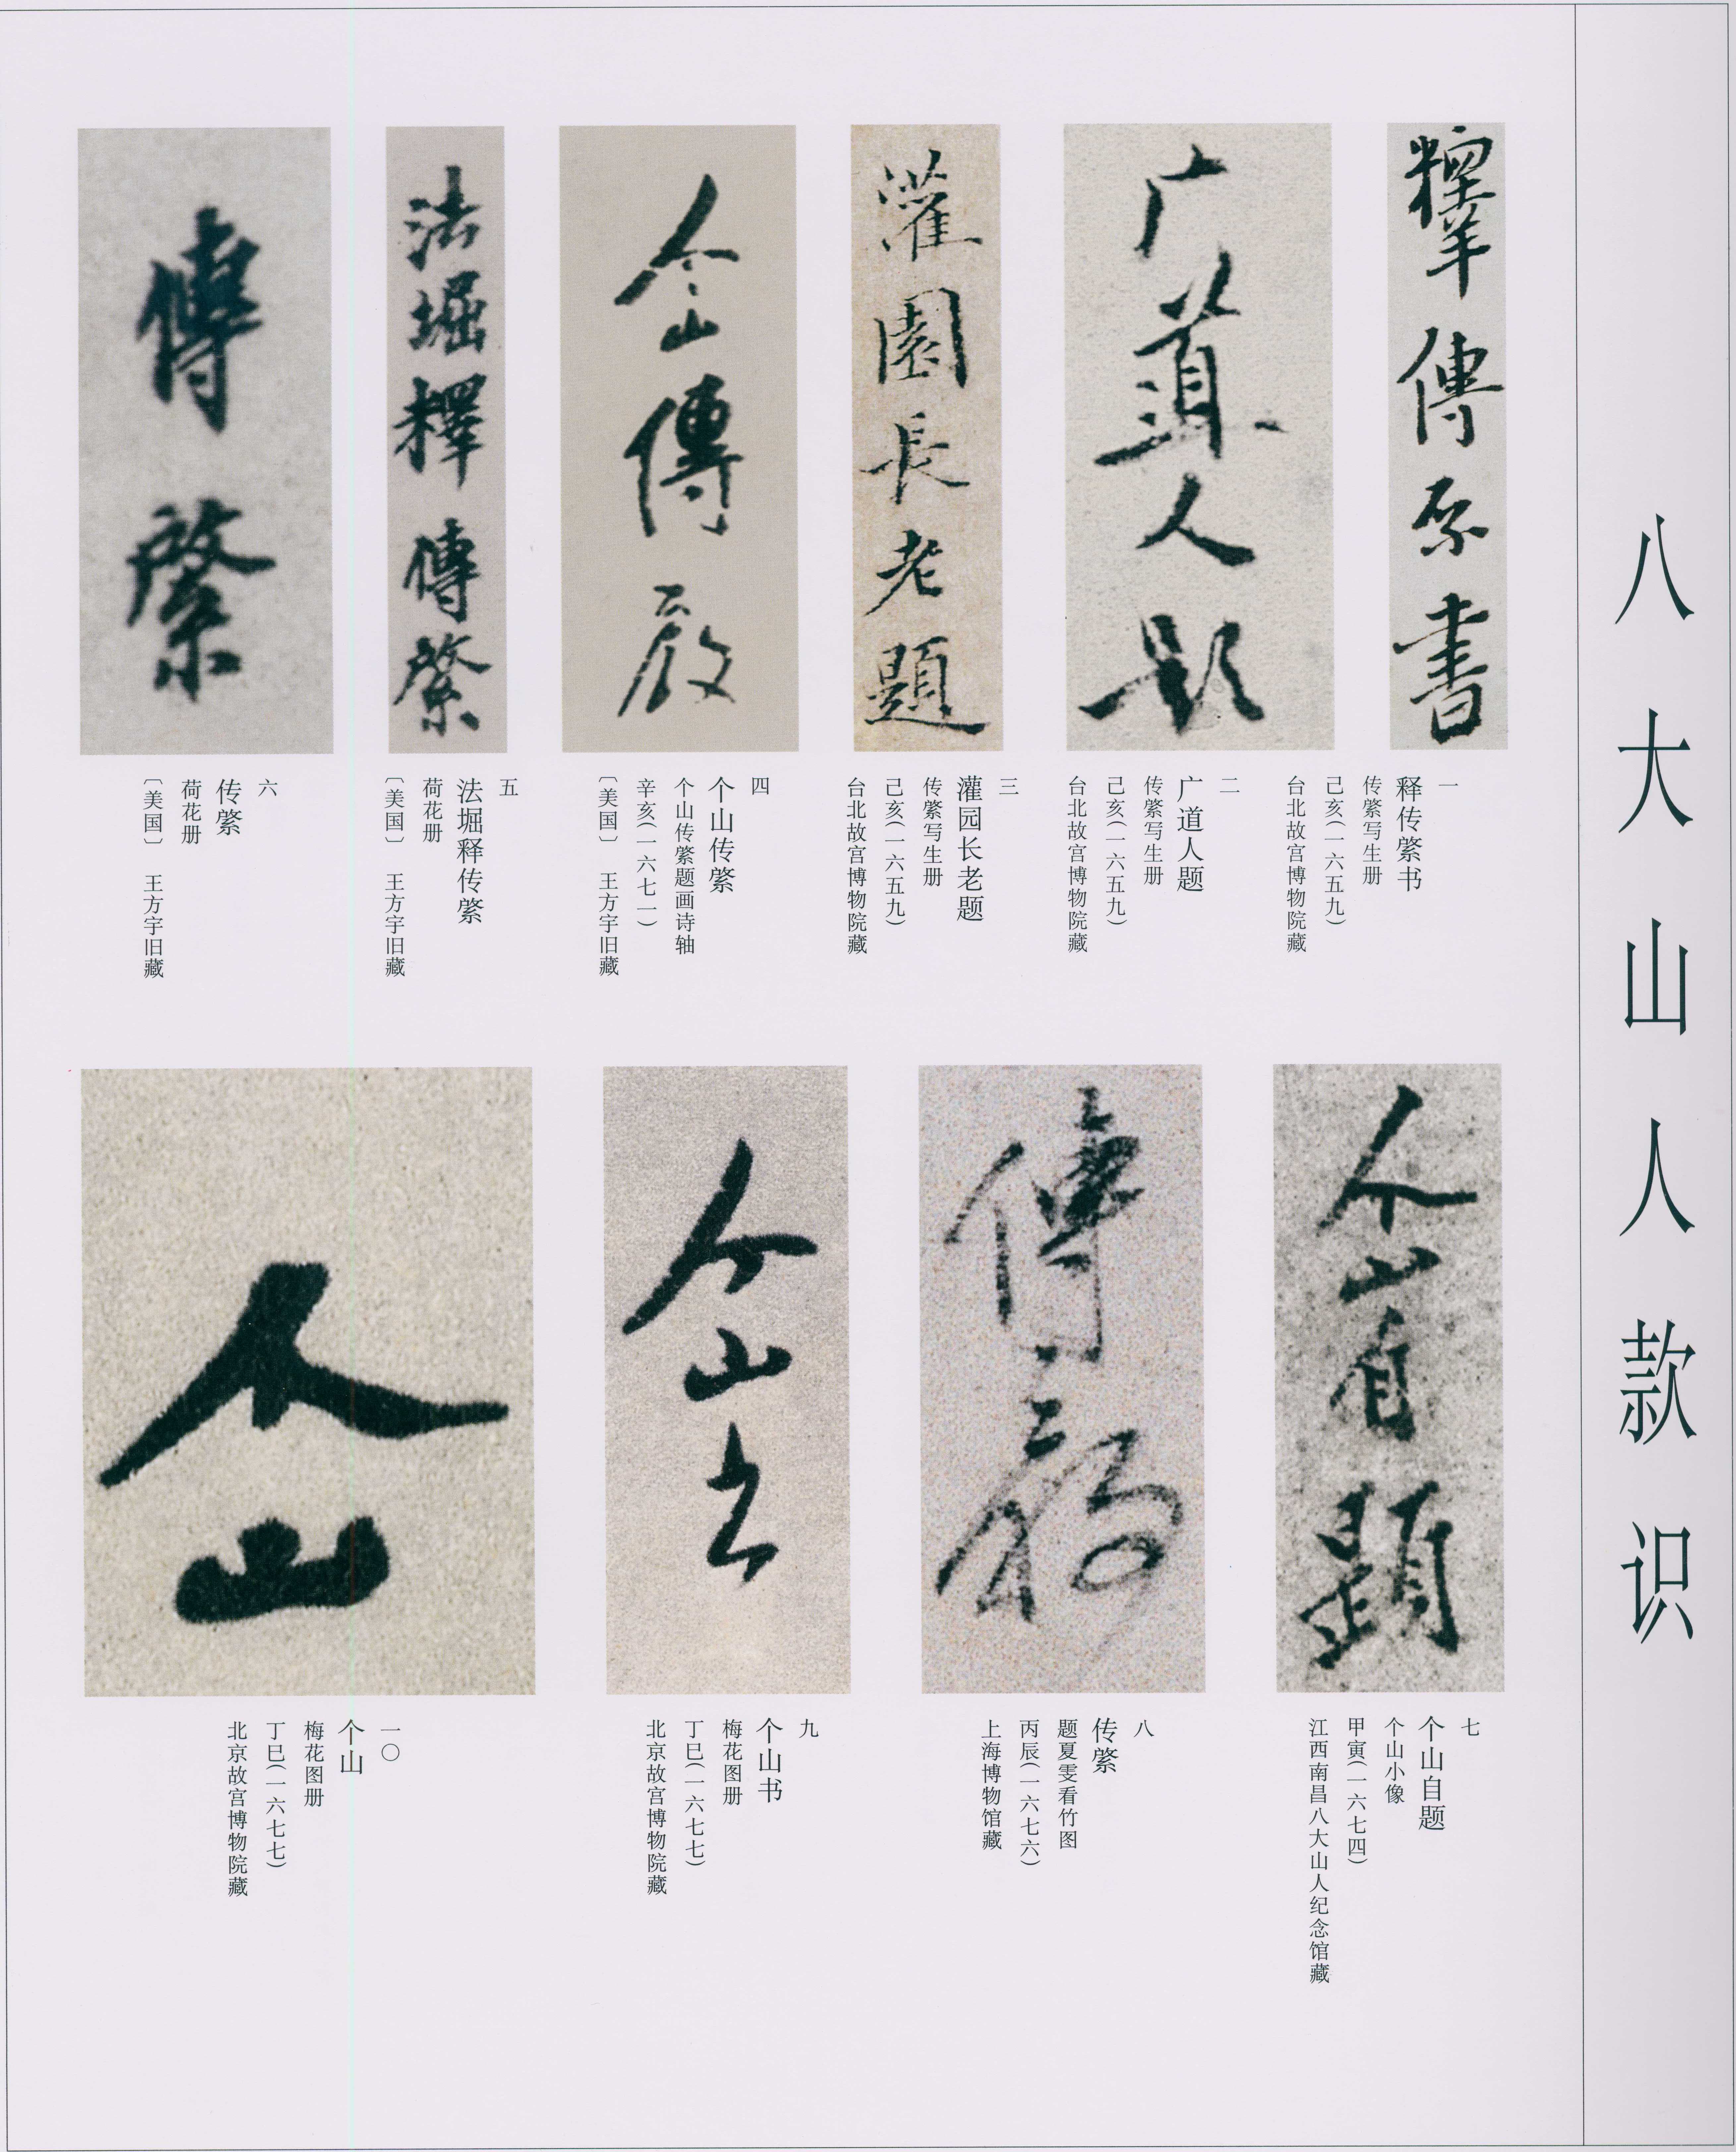 八大山人款识
釋傳綮書
一
释传綮书
传綮写生册
己亥(一六五九)
台北故宫博物院藏
广道人題
二
广道人题
传綮写生册
己亥(一六五九)
台北故宫博物院藏
灌園長老題
三
灌园长老题
传綮写生册
己亥(一六五九)
台北故宫博物院藏
个山傳綮
四
个山传綮
个山传綮题画诗轴
辛亥(一六七一)
〔美国〕 王方宇旧藏
法堀釋傳綮
五
法堀释传綮
荷花册
〔美国〕 王方宇旧藏
傳綮
六
传綮
荷花册
〔美国〕 王方宇旧藏
个山自題
七
个山自题
个山小像
甲寅(一六七四)
江西南昌八大山人纪念馆藏
傳綮
八
传綮
题夏雯看竹图
丙辰(一六七六)
上海博物馆藏
个山书
九
个山书
梅花图册
丁巳(一六七七)
北京故宫博物院藏
个山
一〇
个山
梅花图册
丁巳(一六七七)
北京故宫博物院藏